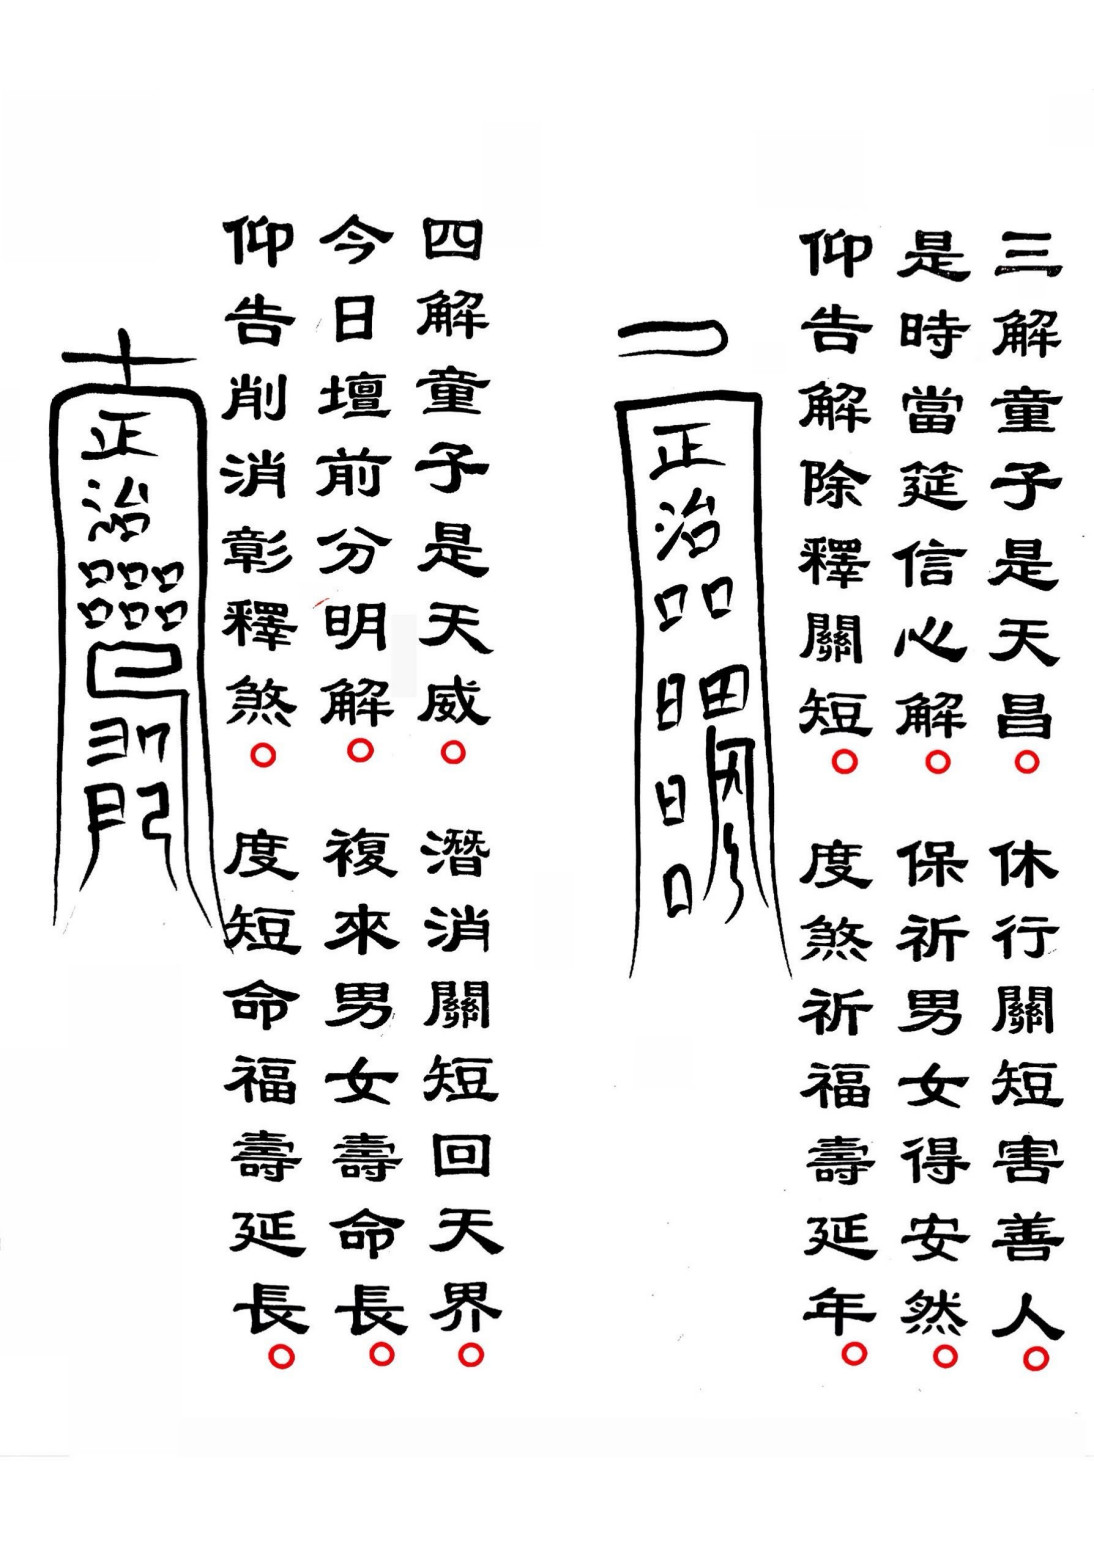 三解童子是天昌○休行關短害善人○
是時當筵信心解○保祈男女得安然○
仰告解除釋關短○度煞祈福壽延年○
正治
四解童子是天威○潛消關短回天界○
今日壇前分明解○複來男女壽命長○
仰告削消彰釋煞○度短命福壽延長○
正治